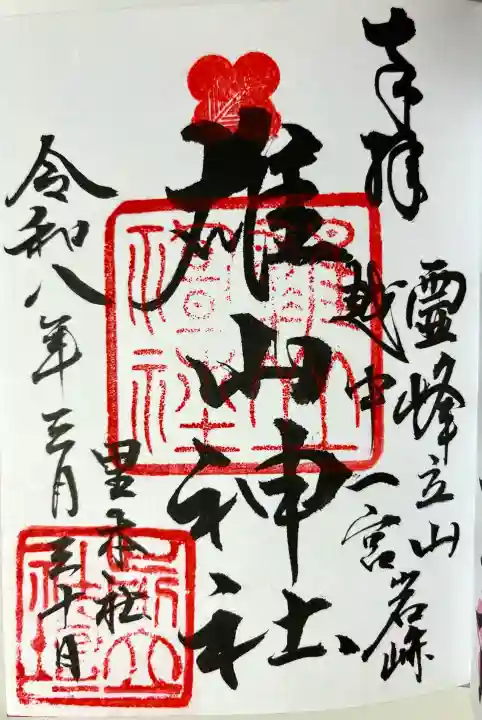 奉拝
霊峰立山
越中一宮岩峅
雄山神社
里本社
令和八年三月三十日